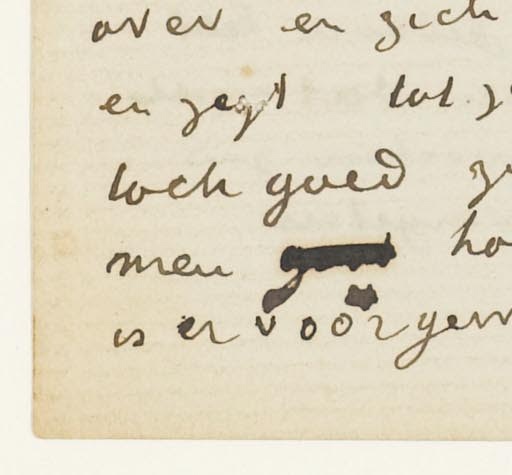 over en zich
en zegt tot z
toch goed z
men ho
is er voor gew